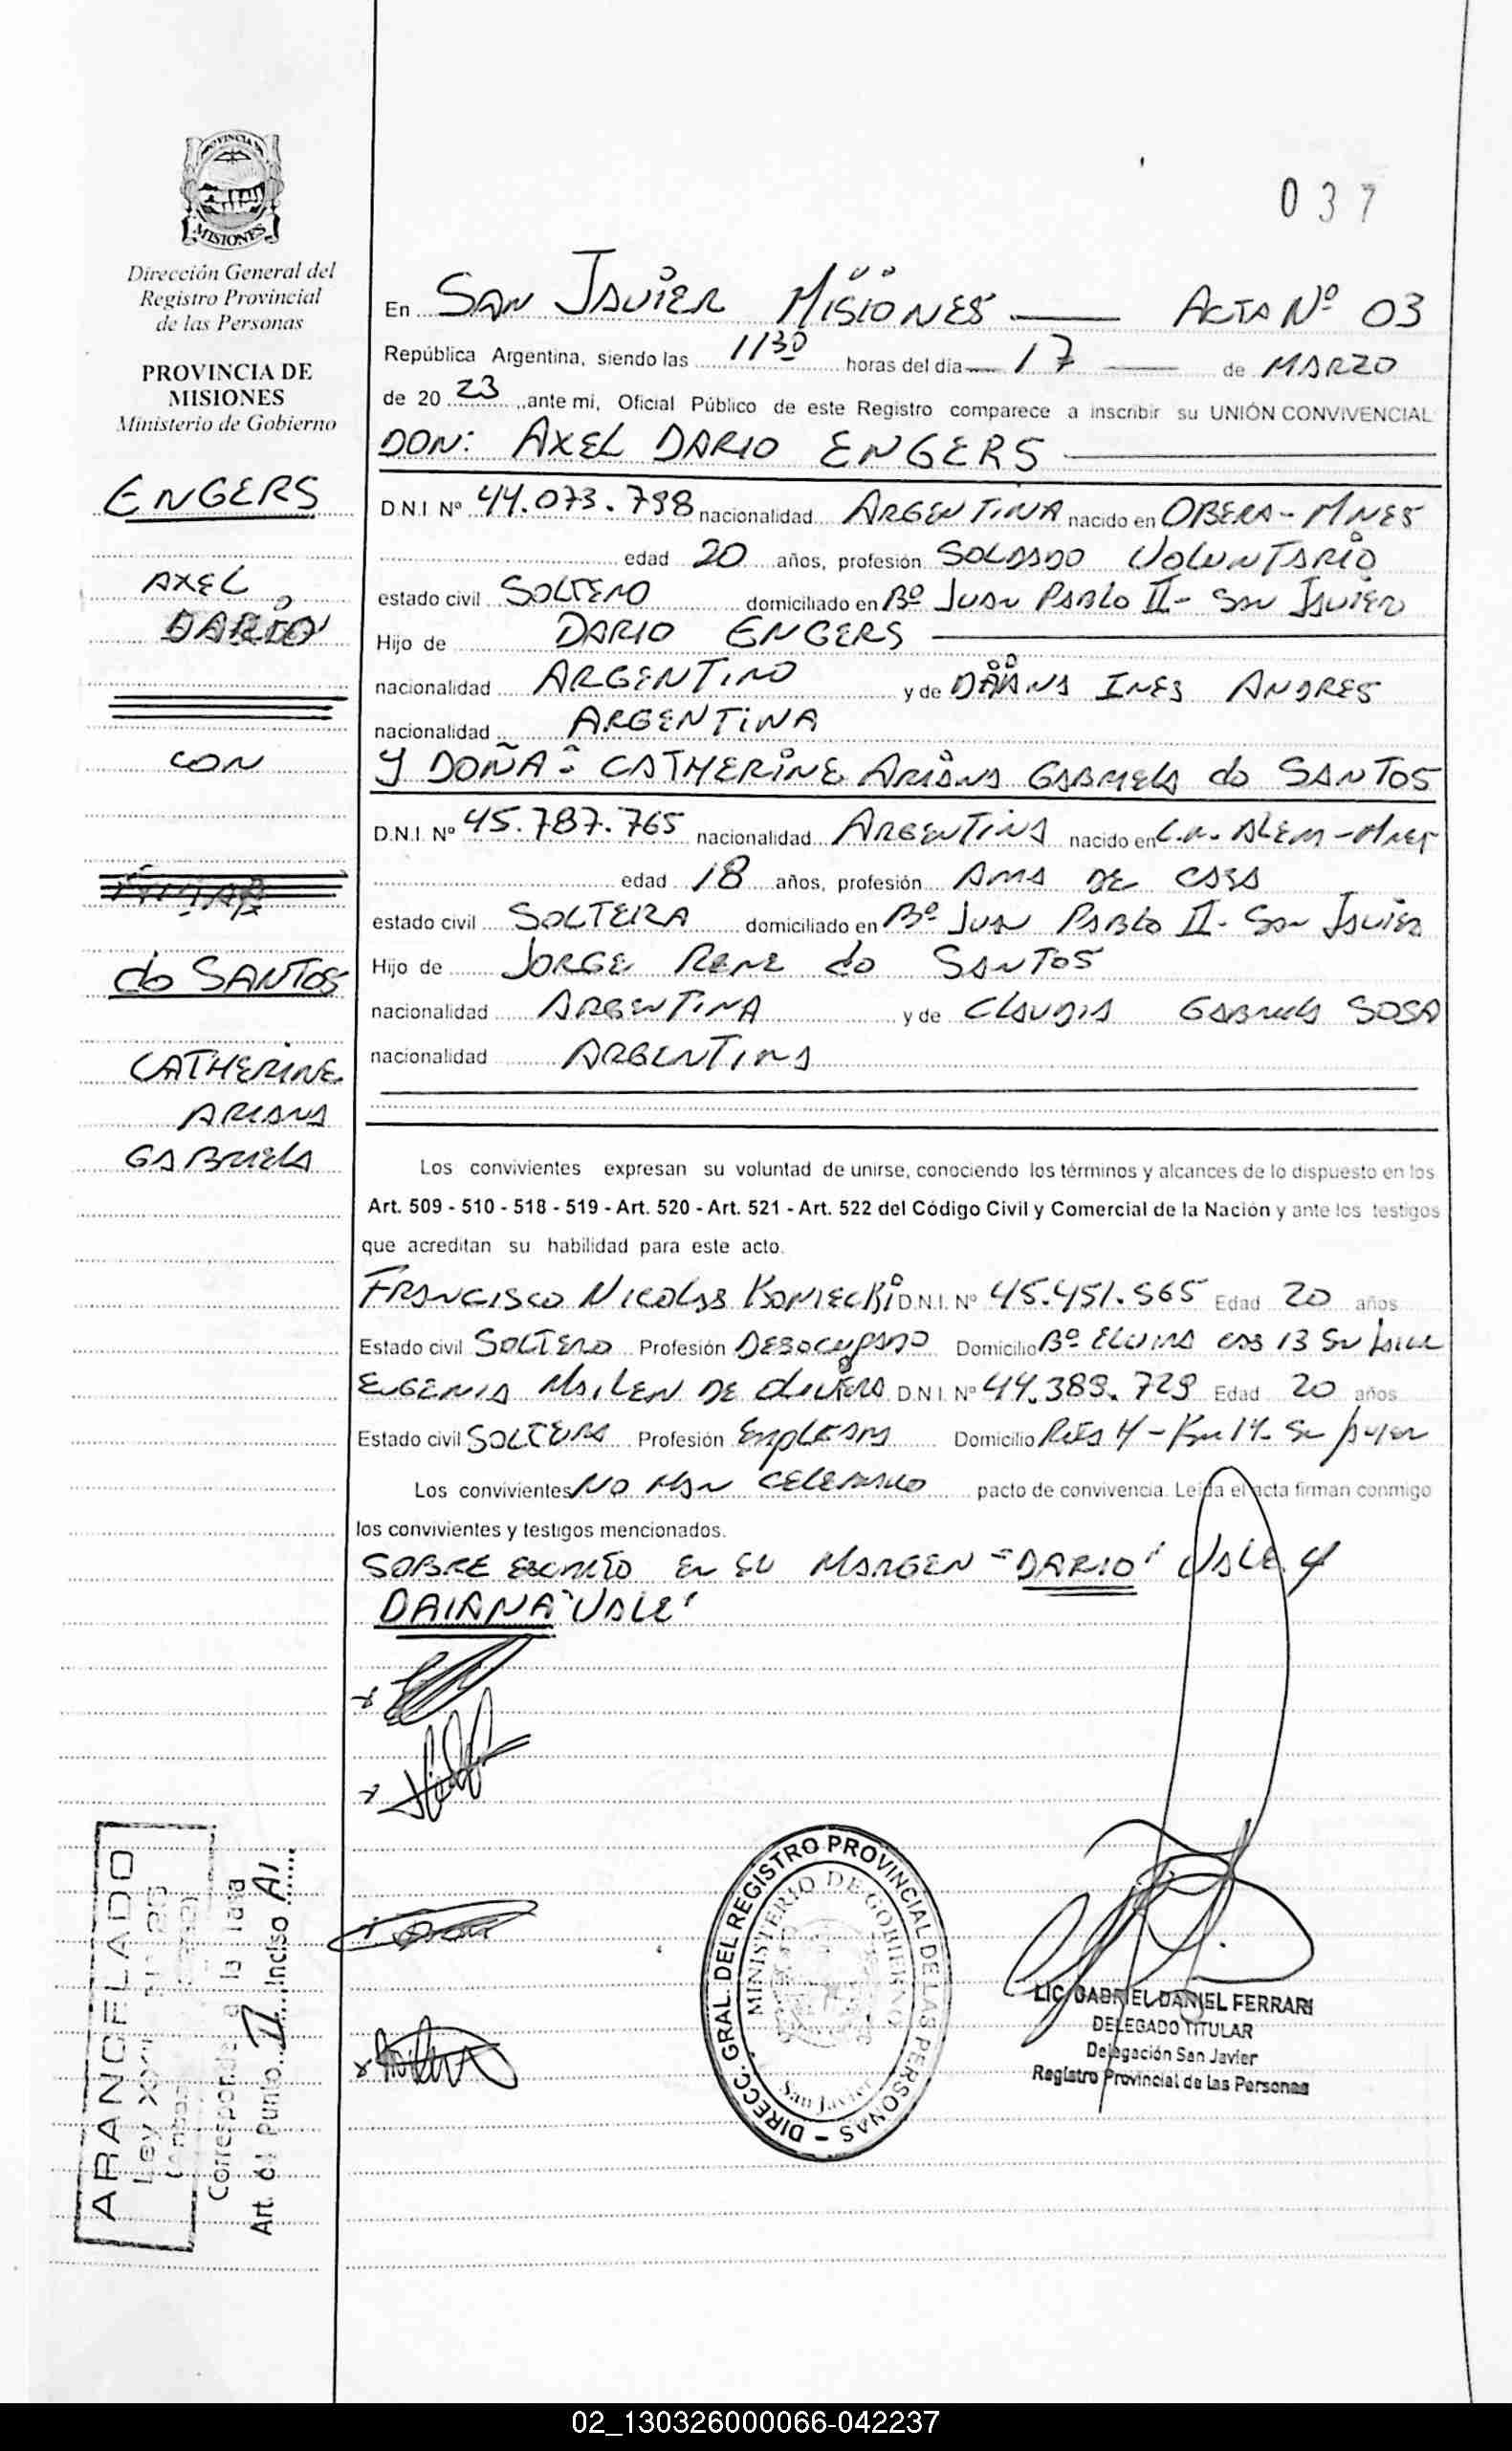 037
PROVINCIA DE
MISIONES
Dirección General del
Registro Provincial
de las Personas
PROVINCIA DE
MISIONES
Ministerio de Gobierno
ENGERS
AXEL
DARIO
CON
do SANTOS
CATHERINE
ARIANA
GABRIELA
En SAN JAVIER MISIONES ACTA Nº 03
República Argentina, siendo las 1130 horas del día 17 de MARZO
de 20 23 ante mi, Oficial Público de este Registro comparece a inscribir su UNIÓN CONVIVENCIAL
DON: AXEL DARIO ENGERS
D.N.I. Nº 44.073.798 nacionalidad ARGENTINA nacido en OBERA - MNES
edad 20 años, profesión SOLDADO VOLUNTARIO
estado civil SOLTERO domiciliado en Bº JUAN PABLO II - SAN JAVIER
Hijo de DARIO ENGERS
nacionalidad ARGENTINO y de DAIANA INES ANDRES
nacionalidad ARGENTINA
Y DOÑA: CATHERINE ARIANA GABRIELA do SANTOS
D.N.I. Nº 45.787.765 nacionalidad ARGENTINA nacido en L.N. ALEM - MNES
edad 18 años, profesión AMA DE CASA
estado civil SOLTERA domiciliado en Bº JUAN PABLO II - SAN JAVIER
Hijo de JORGE RENE do SANTOS
nacionalidad ARGENTINA y de CLAUDIA GABRIELA SOSA
nacionalidad ARGENTINA
Los convivientes expresan su voluntad de unirse, conociendo los términos y alcances de lo dispuesto en los
Art. 509 - 510 - 518 - 519 - Art. 520 - Art. 521 - Art. 522 del Código Civil y Comercial de la Nación y ante los testigos
que acreditan su habilidad para este acto.
FRANCISCO NICOLAS KONIECKI D.N.I. Nº 45.451.565 Edad 20 años
Estado civil SOLTERO Profesión DESOCUPADO Domicilio Bº 13
EUGENIA MAILEN DE OLIVERA D.N.I. Nº 44.389.729 Edad 20 años
Estado civil SOLTERA Profesión EMPLEADA Domicilio RUTA 4 - Km 14
Los convivientes NO HAN CELEBRADO pacto de convivencia. Leída el acta firman conmigo
los convivientes y testigos mencionados.
SOBRE ESCRITO EN SU MARGEN "DARIO" VALE Y
DAIANA "VALE"
ARANCELADO
Ley XXII
Corresponde a la Tasa
Art. 61 Punto II Inciso A1
DIRECC. GRAL. DEL REGISTRO PROVINCIAL DE LAS PERSONAS -
MINISTERIO DE GOBIERNO
San Javier
LIC. GABRIEL DANIEL FERRARI
DELEGADO TITULAR
Delegación San Javier
Registro Provincial de las Personas
02_130326000066-042237